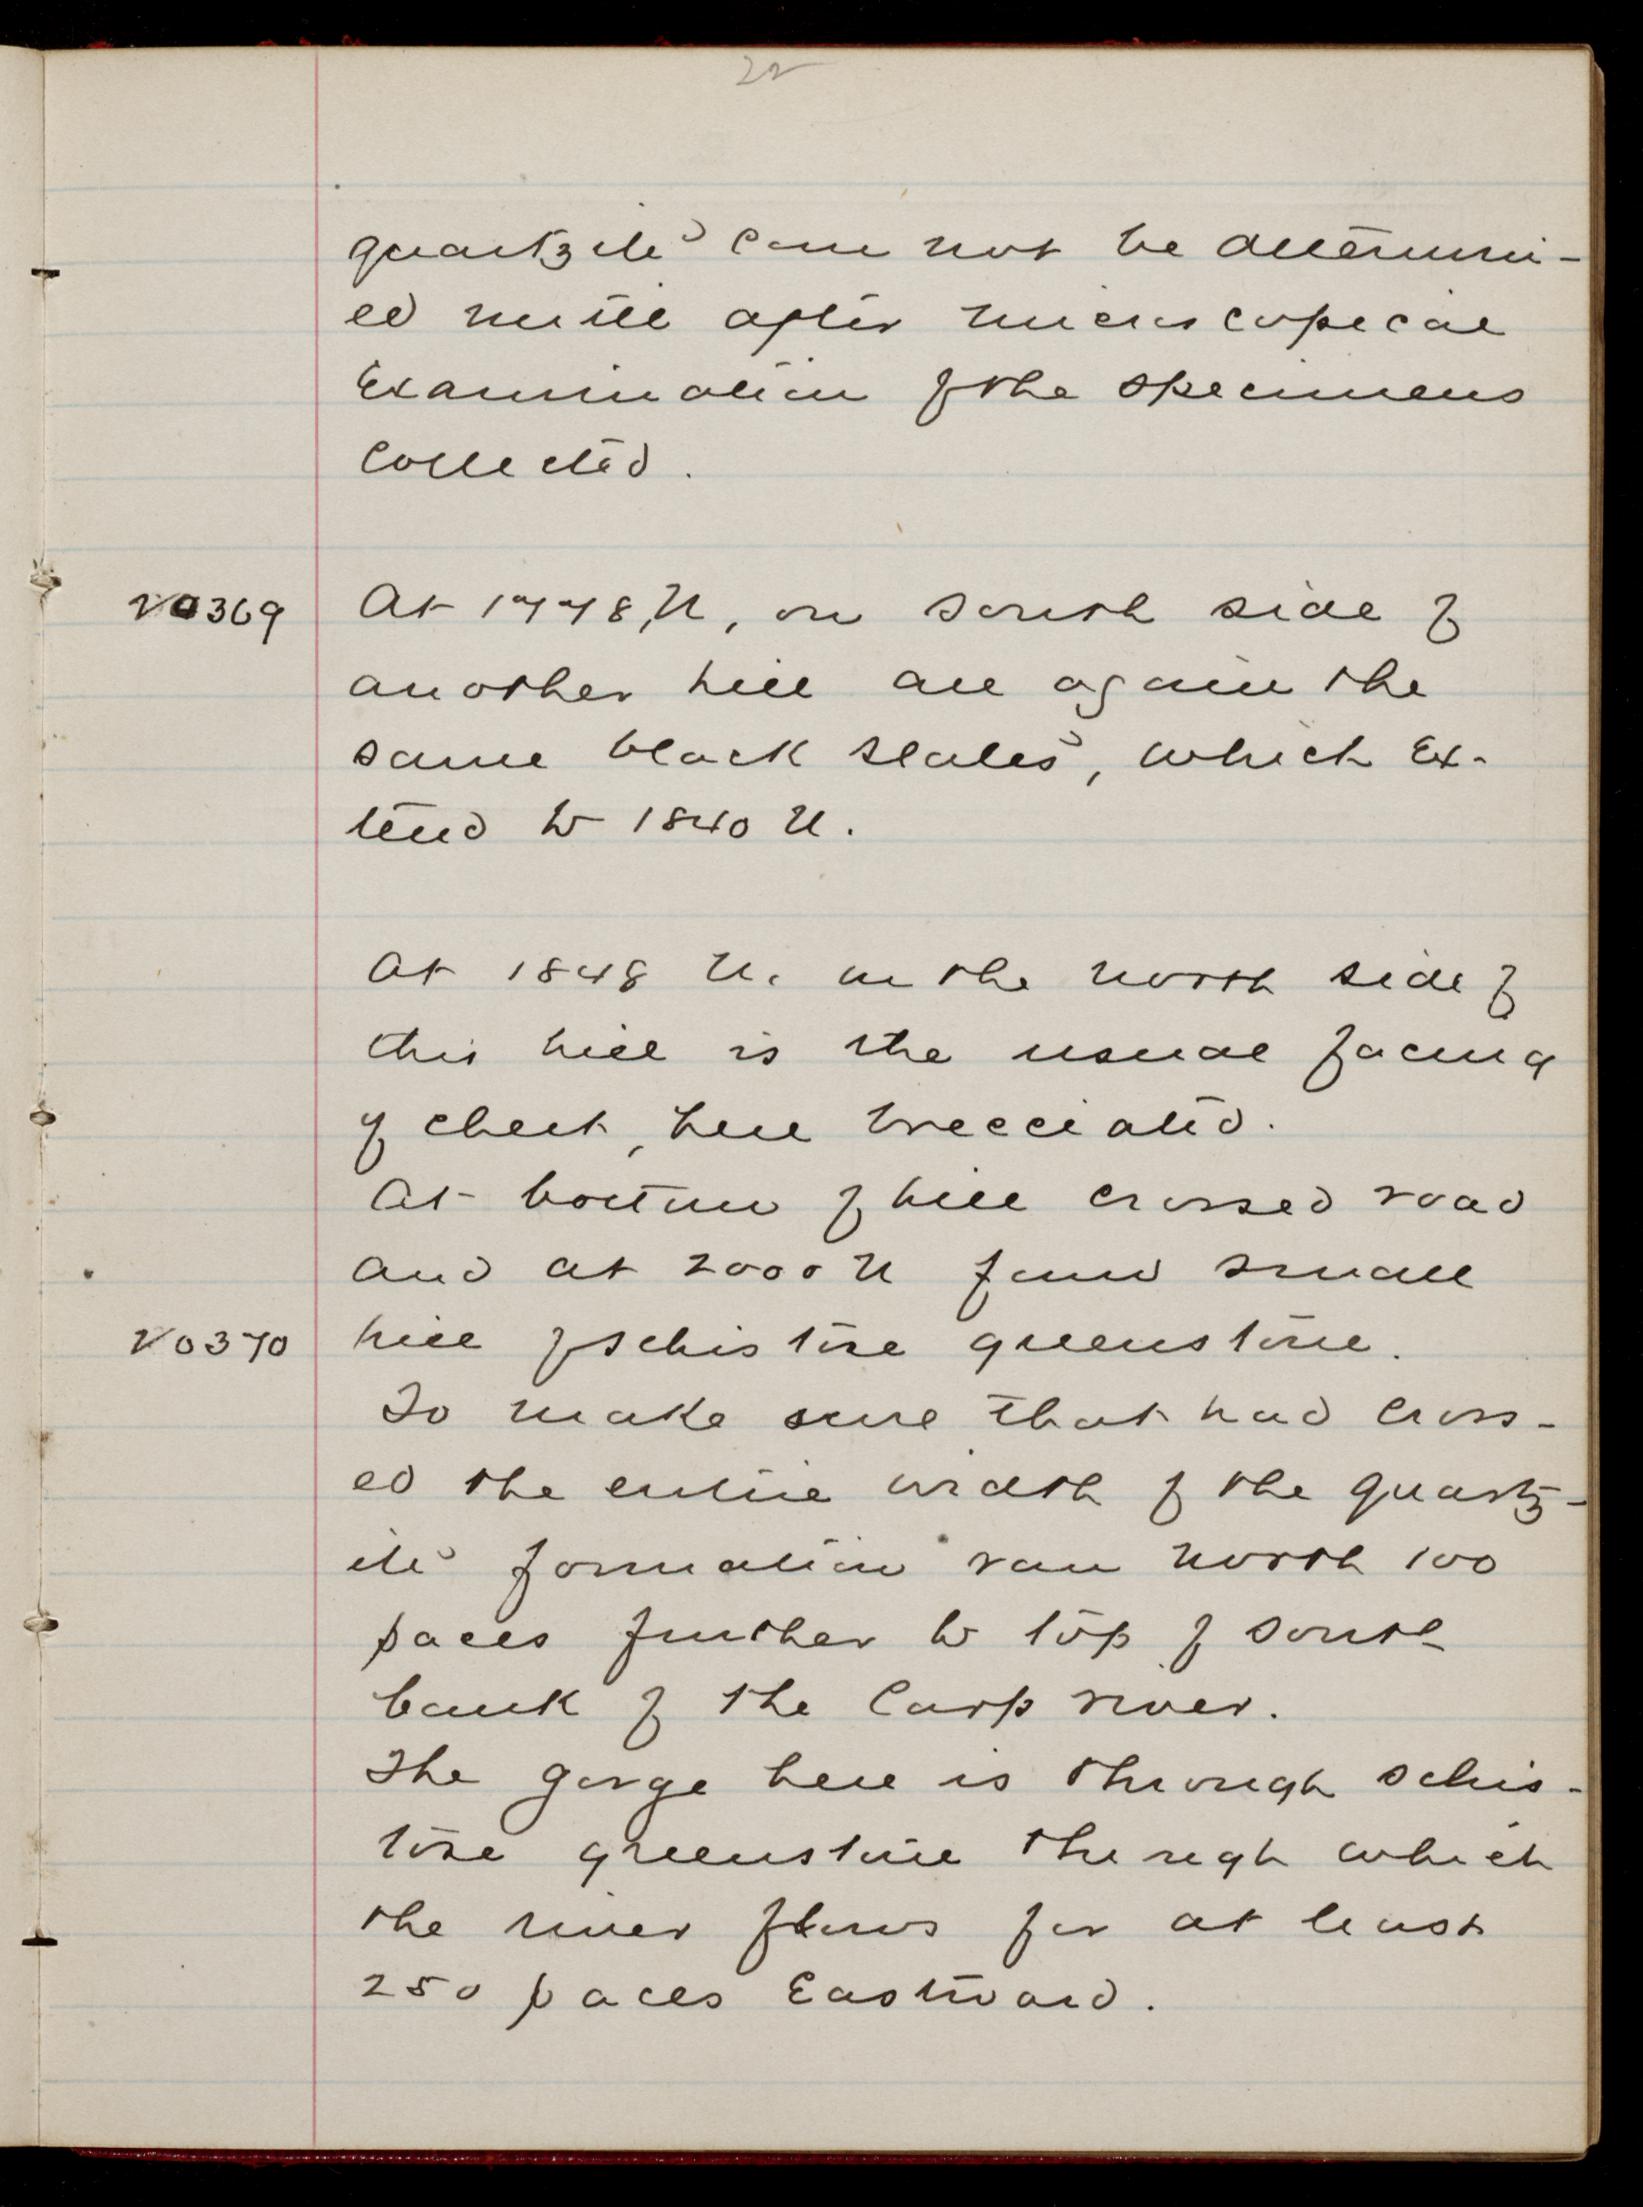 22
quartzite can not be determin-
ed until after microscopical
Examination of the specimens
collected.
20369 At 1778, N, on south side of
another hill are again the
same black slates, which Ex-
tend to 1840 N.
At 1848 N. on the north side of
this hill is the usual facing
of chert, here brecciated.
At bottom of hill crossed road
and at 2000 N found small
20370 hill of schistose greenstone.
To make sure that had cross-
ed the entire width of the quartz-
ite formation ran north 100
paces further to top of south
bank of the Carp river.
The gorge here is through schis-
tose greenstone through which
the river flows for at least
250 paces Eastward.